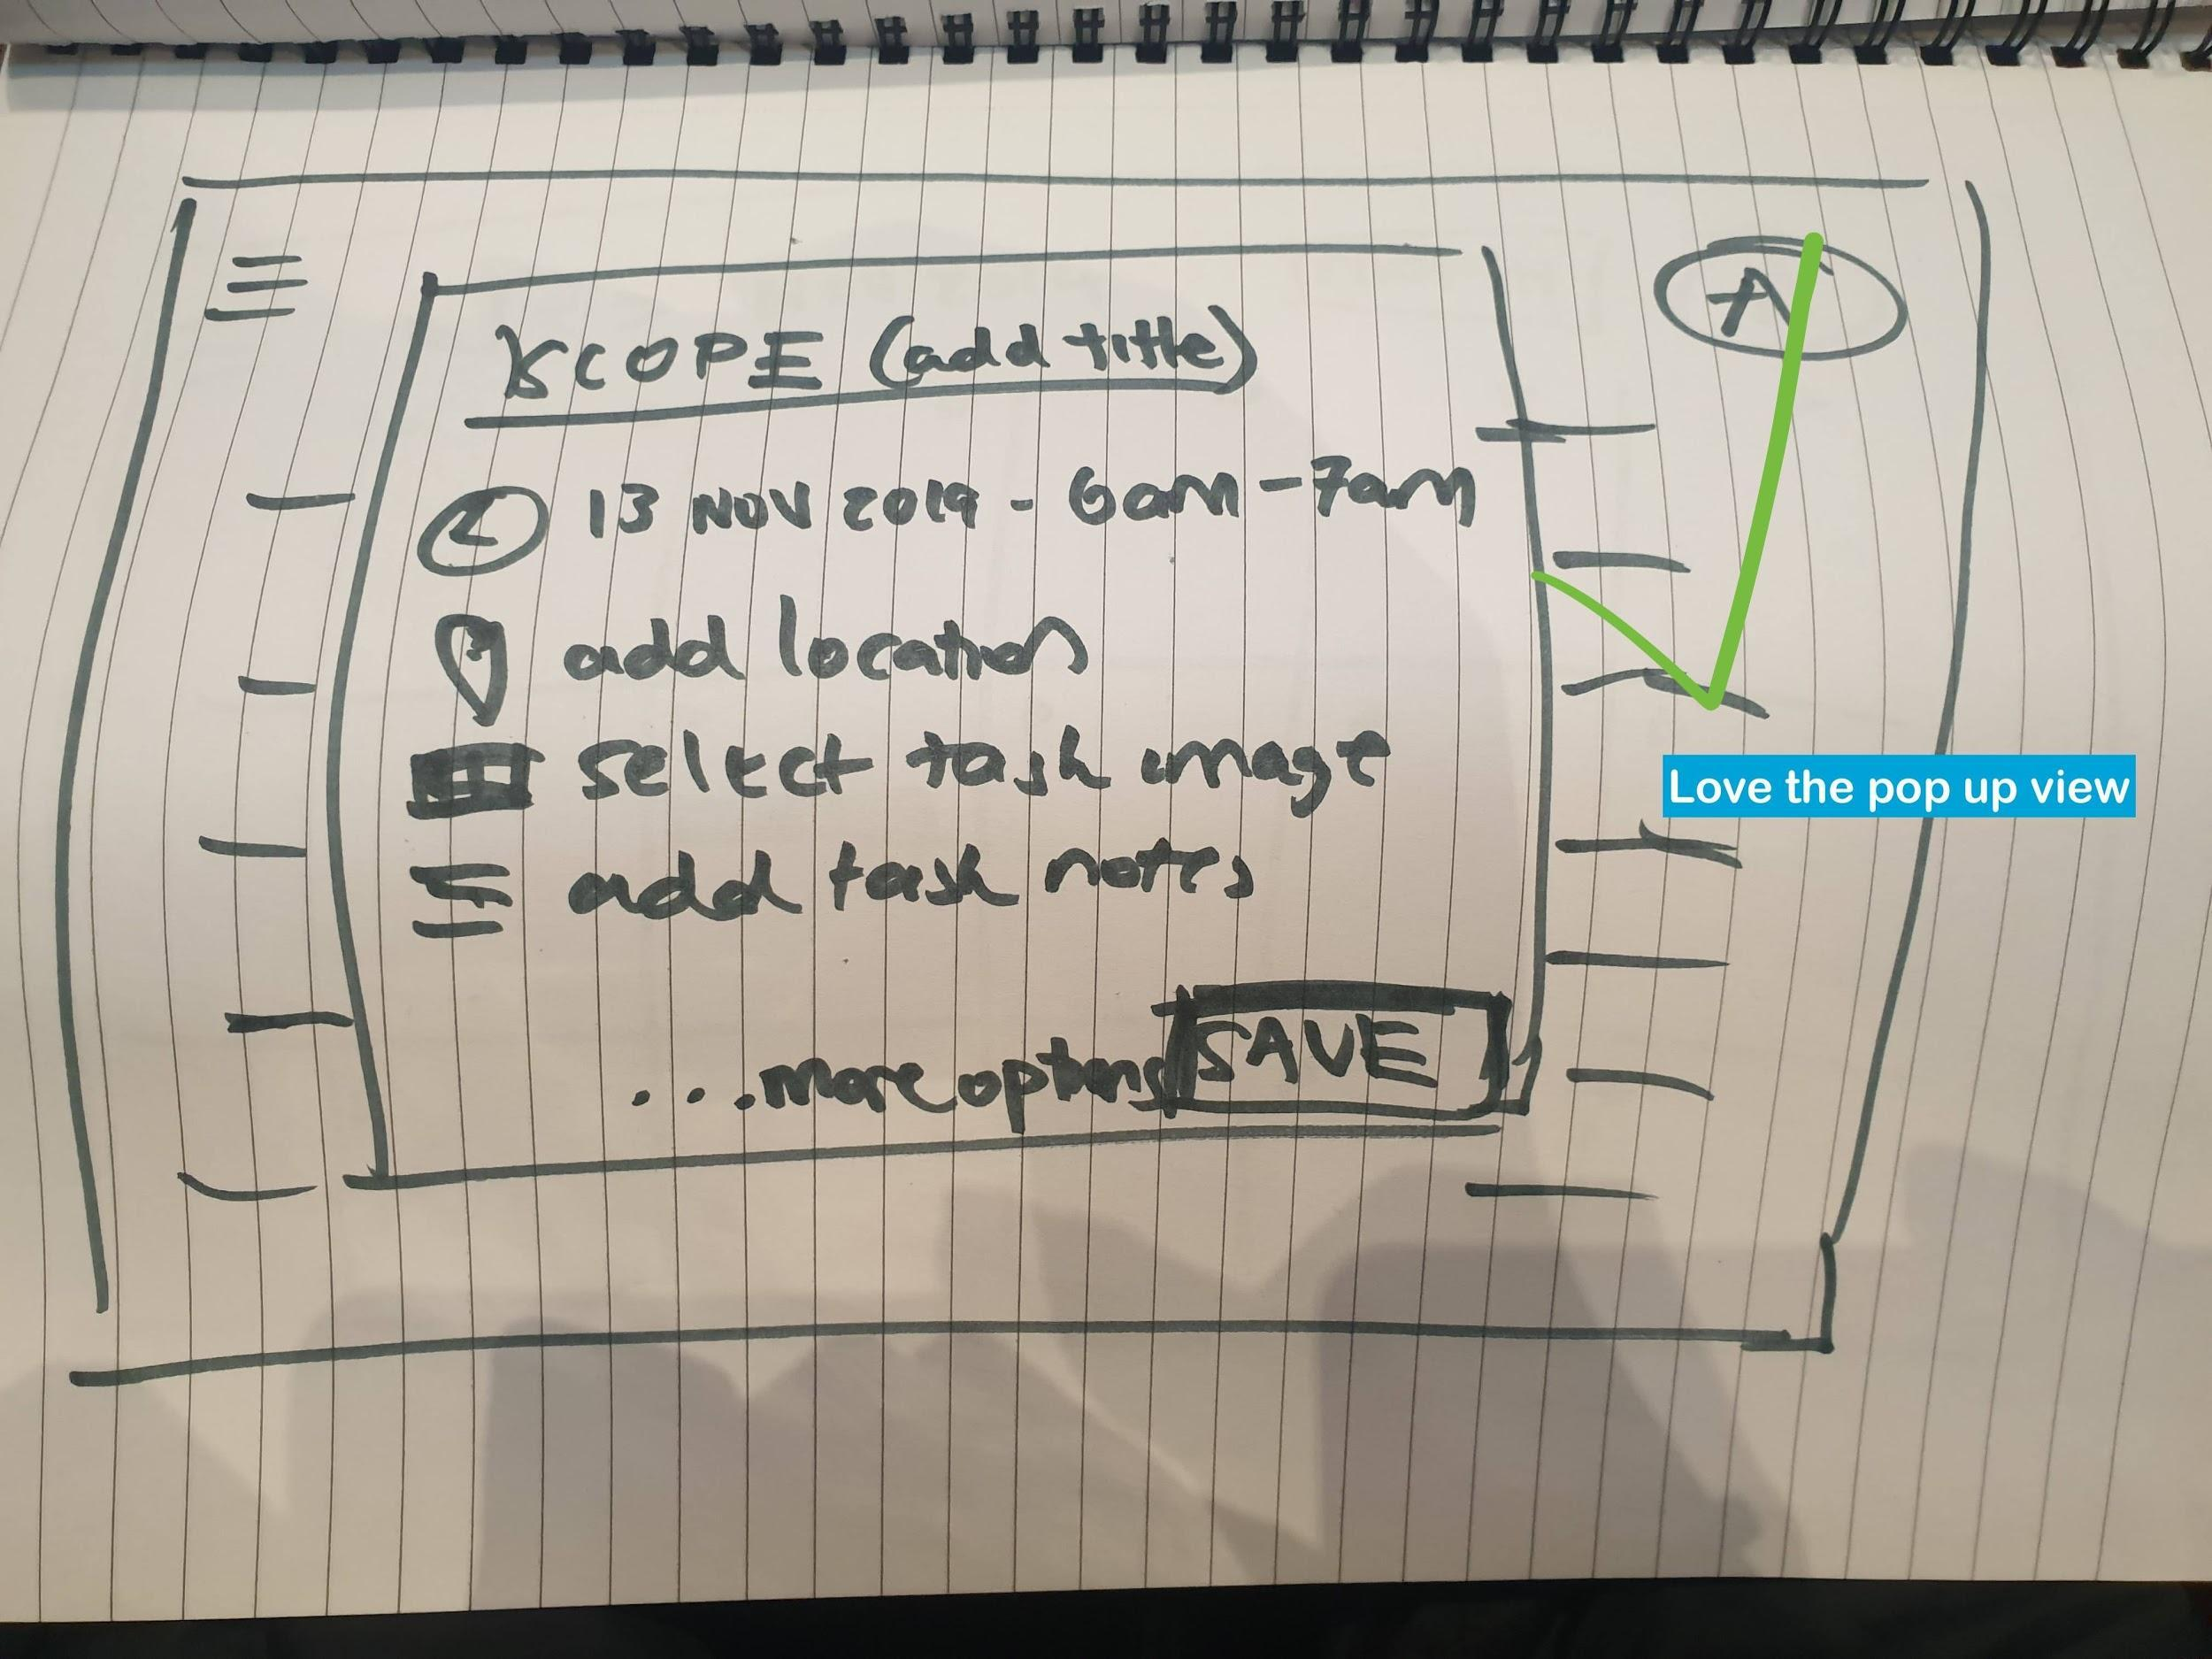 A
SCOPE (add title)
13 NOV 2019 - 6am - 7am
add location
select task image
add task notes
...more options
SAVE
Love the pop up view